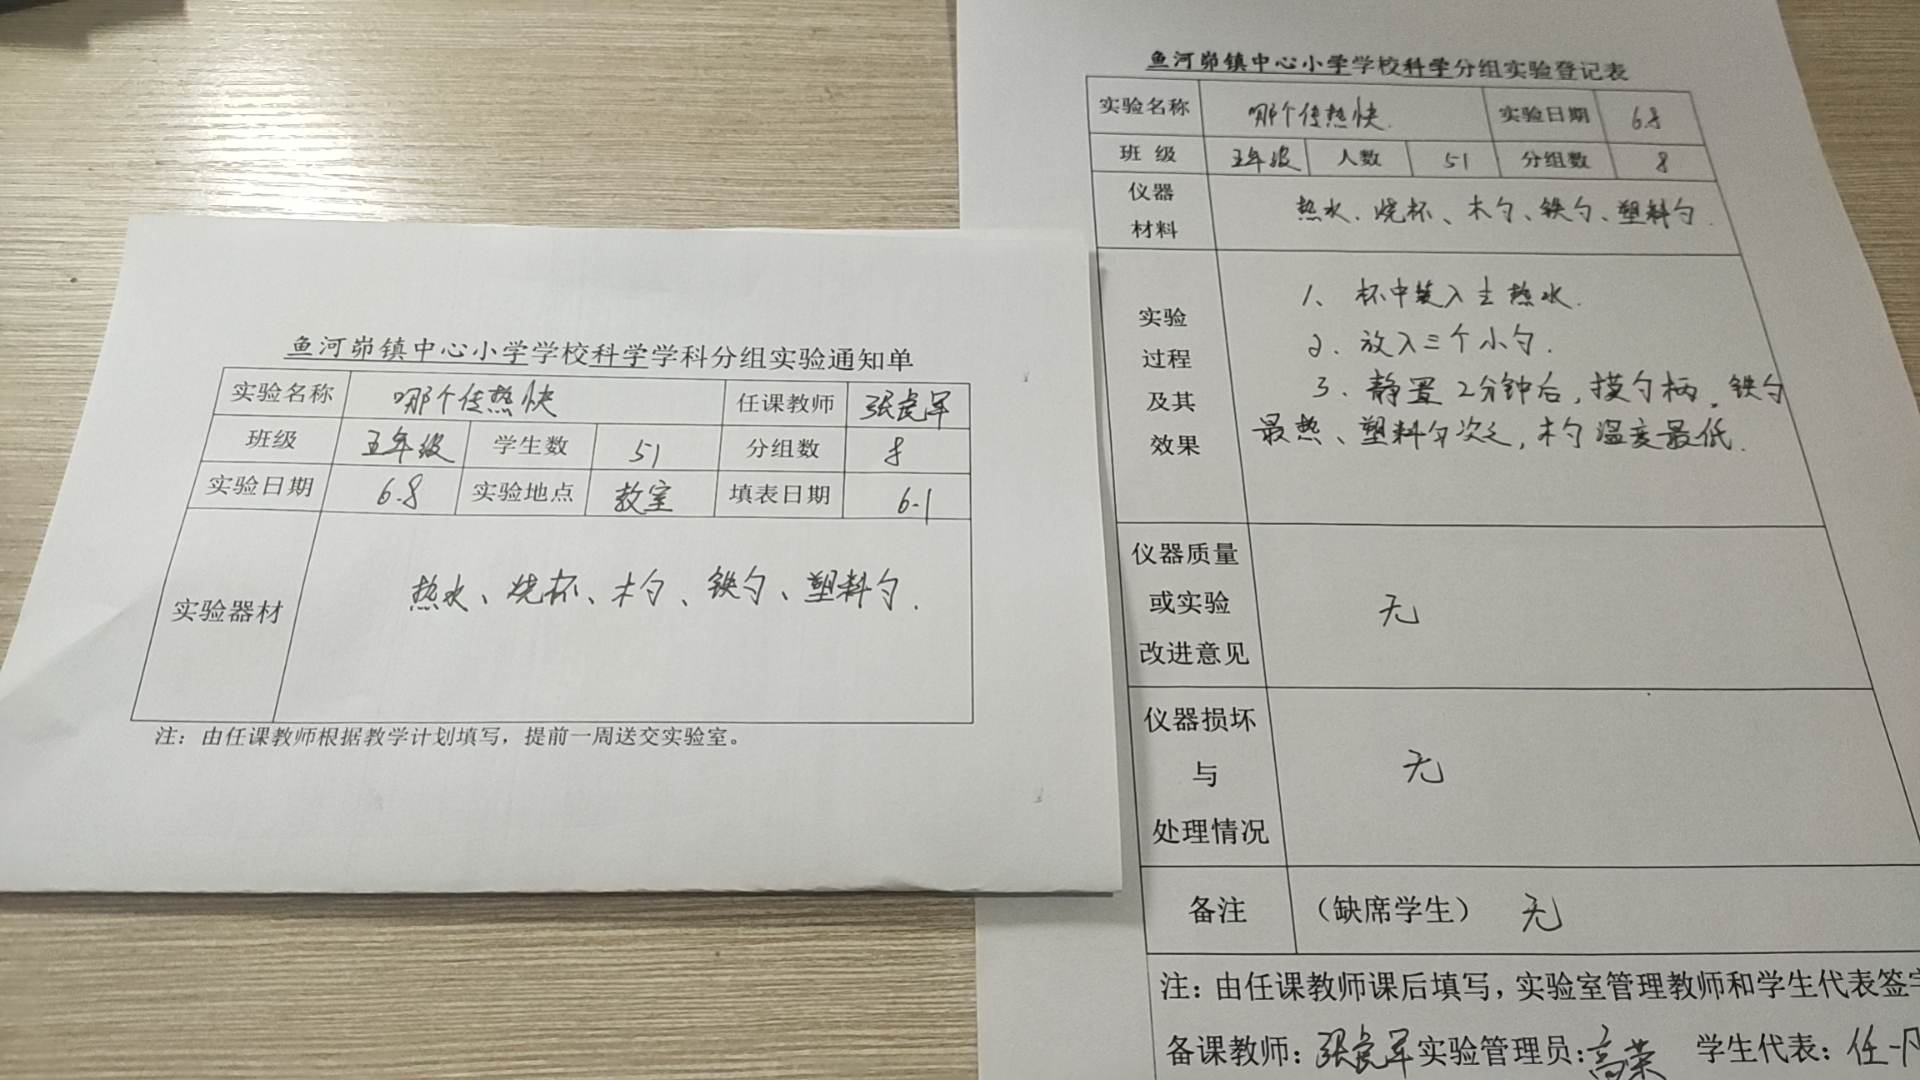 鱼河峁镇中心小学学校科学学科分组实验通知单
实验名称 哪个传热快 任课教师 张虎军
班级 五年级 学生数 51 分组数 8
实验日期 6.8 实验地点 教室 填表日期 6.1
实验器材 热水、烧杯、木勺、铁勺、塑料勺.
注：由任课教师根据教学计划填写，提前一周送交实验室。
鱼河峁镇中心小学学校科学分组实验登记表
实验名称 哪个传热快. 实验日期 6.8
班 级 五年级 人数 51 分组数 8
仪器
材料
热水、烧杯、木勺、铁勺、塑料勺.
实验
过程
及其
效果
1、杯中装入 热水.
2、放入三个小勺.
3、静置2分钟后，摸勺柄，铁勺
最热、塑料勺次之，木勺温度最低.
仪器质量
或实验
改进意见
无
仪器损坏
与
处理情况
无
备注 （缺席学生） 无
注：由任课教师课后填写，实验室管理教师和学生代表签字
备课教师：张虎军 实验管理员：高荣 学生代表：任一凡